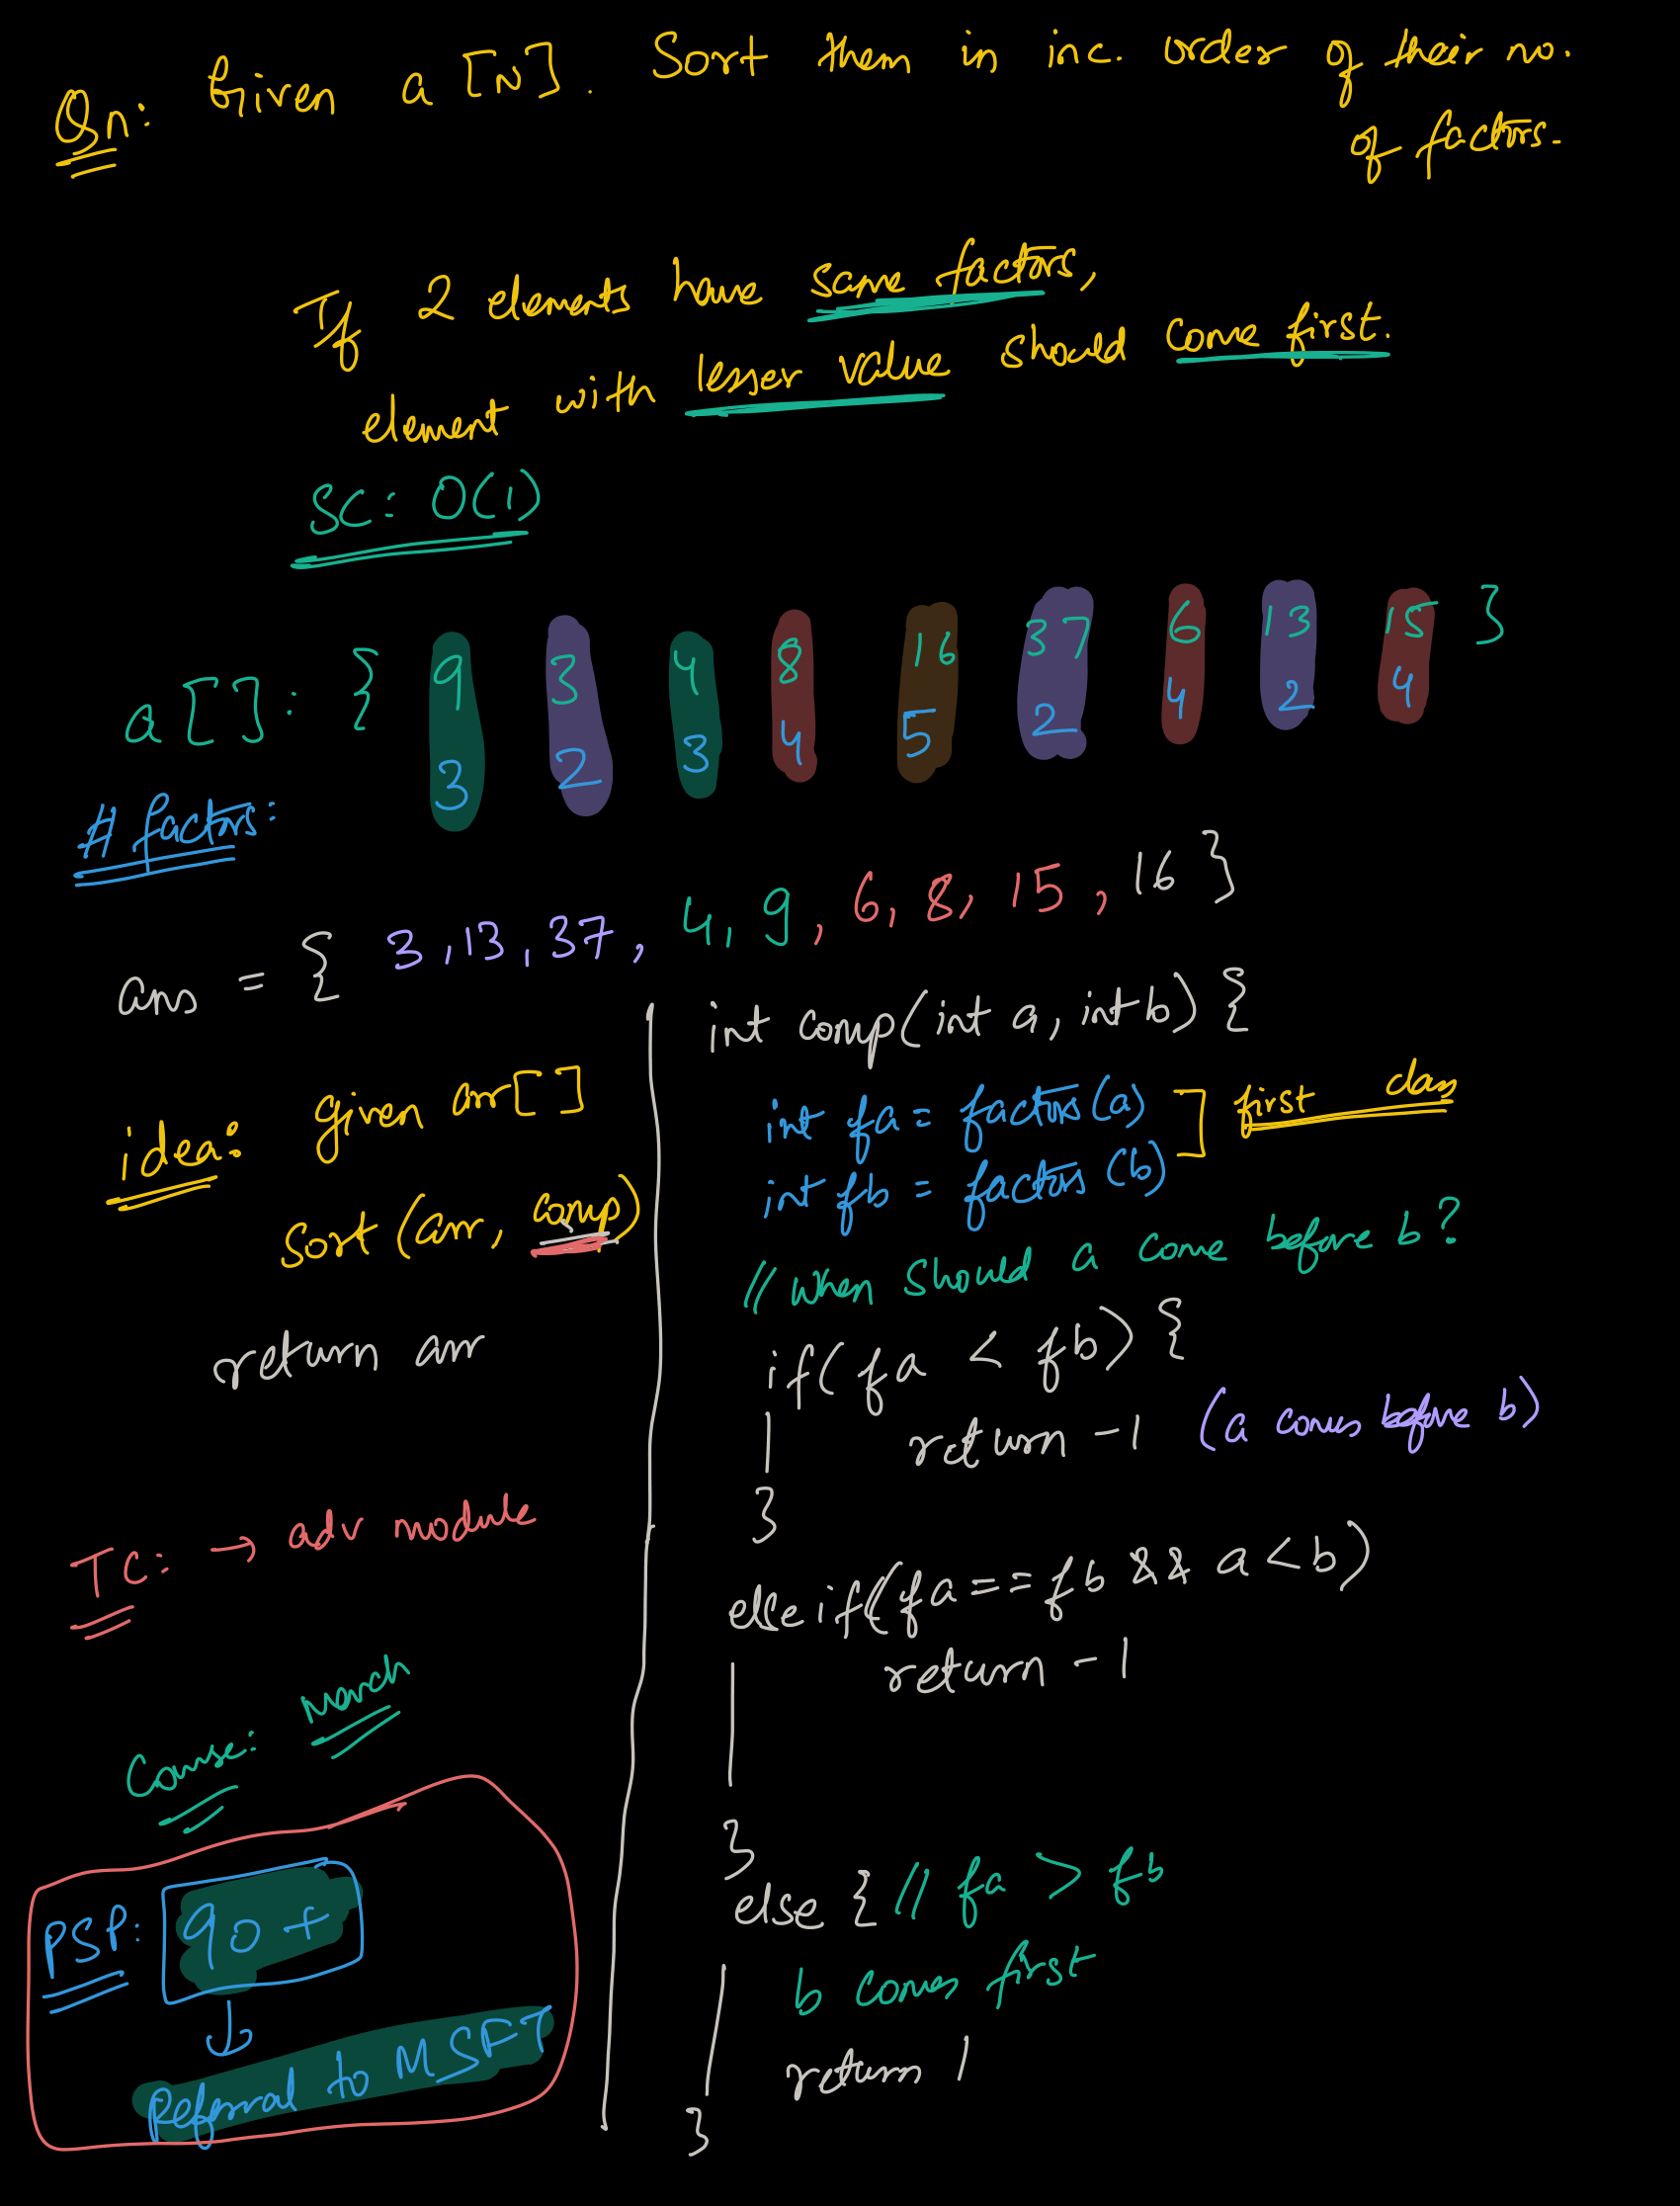 Qn: Given a [N]. Sort them in inc. order of their no.
of factors.
If 2 elements have same factors,
element with lesser value should come first.
SC: O(1)
a[]: { 9 3 4 8 16 37 6 13 15 }
# factors: 3 2 3 4 5 2 4 2 4
ans = { 3, 13, 37, 4, 9, 6, 8, 15, 16 }
idea: given arr[]
sort (arr, comp)
return arr
TC: → adv module
Course: March
PSP: 90+
↓
Referral to MSFT
int comp(int a, int b) {
int fa = factors(a)
int fb = factors (b)
] first class
// when should a come before b?
if( fa < fb) {
return -1 (a comes before b)
}
else if( fa == fb && a < b)
return -1
}
else { // fa > fb
b comes first
return 1
}